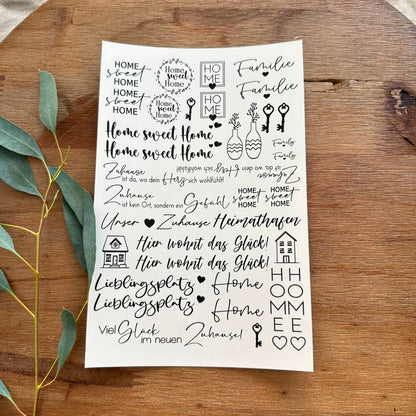 HOME
sweet
HOME
HOME
sweet
HOME
Home
sweet
Home
Home
sweet
Home
HO
ME
HO
ME
Familie
Familie
Home sweet Home
Home sweet Home
Family
Family
Zuhause
ist da, wo dein Herz sich wohlfühlt!
Zuhause
ist da, wo dein Herz sich wohlfühlt!
Zuhause
ist kein Ort, sondern ein Gefühl
HOME
sweet
HOME
HOME
sweet
HOME
Unser Zuhause Heimathafen
Hier wohnt das Glück!
Hier wohnt das Glück!
Lieblingsplatz Home
Lieblingsplatz Home
H H
O O
M M
E E
Viel Glück
im neuen Zuhause!